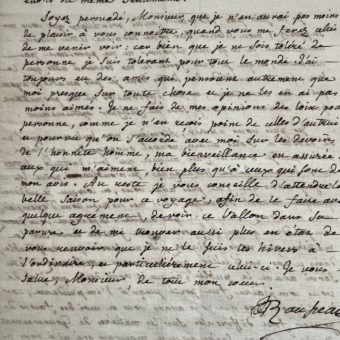 de même
Soyez persuadé, Monsieur, que je n'en aurai pas moins
de plaisir à vous connoître, quand vous me ferez celui
de me venir voir : car bien que je ne sois toléré de
personne, je suis tolérant pour tout le monde. J'ai
toujours eu des amis qui pensoient autrement que
moi presque sur toute chose et je ne les en ai pas
moins aimés. Je ne fais de mes opinions des loix pour
personne, comme je n'en reçois point de celles d'autrui
et pourvu qu'on s'accorde avec moi sur les devoirs
de l'honnête homme, ma bienveillance en assurée à
ceux que m'aiment bien plus qu'à ceux qui sont de
mon avis. Au reste je vous conseille d'attendre la
belle saison pour ce voyage, afin de le faire avec
quelque agrément, de voir ce vallon dans sa
parure et de me trouver aussi plus en état de
vous recevoir que je ne le suis les hivers à
l'ordinaire, et particulièrement celui-ci. Je vous
salue, Monsieur, de tout mon coeur.